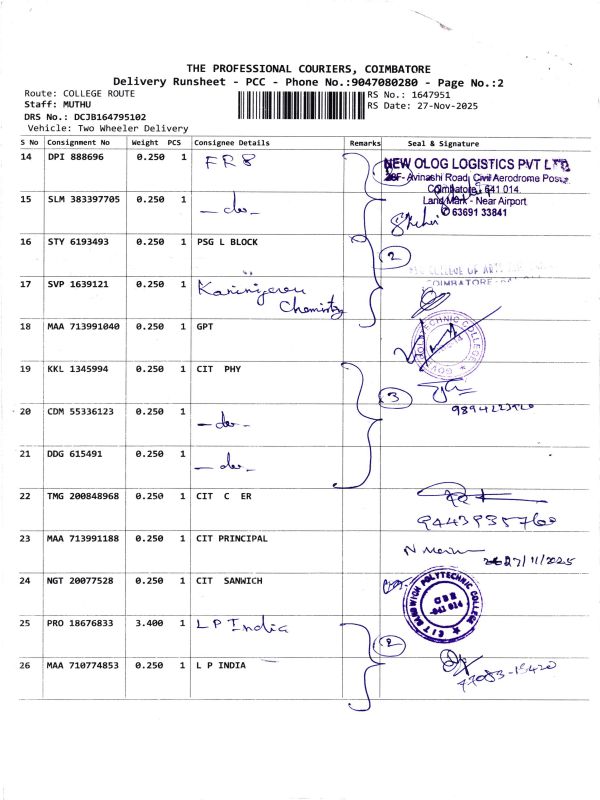 THE PROFESSIONAL COURIERS, COIMBATORE
Delivery Runsheet - PCC - Phone No.:9047080280 - Page No.:2
Route: COLLEGE ROUTE RS No.: 1647951
Staff: MUTHU RS Date: 27-Nov-2025
DRS No.: DCJB164795102
Vehicle: Two Wheeler Delivery
S No Consignment No Weight PCS Consignee Details Remarks Seal & Signature
14 DPI 888696 0.250 1 FR8
NEW OLOG LOGISTICS PVT LTD
28F- Avinashi Road, Civil Aerodrome Post,
Coimbatore, 641 014.
15 SLM 383397705 0.250 1 - do -
Land Mark - Near Airport
✆ 63691 33841
16 STY 6193493 0.250 1 PSG L BLOCK
2
COLLEGE OF ARTS
COIMBATORE
17 SVP 1639121 0.250 1
Chemistry
18 MAA 713991040 0.250 1 GPT
POLYTECHNIC COLLEGE
19 KKL 1345994 0.250 1 CIT PHY
3
20 CDM 55336123 0.250 1 - do -
21 DDG 615491 0.250 1 - do -
22 TMG 200848968 0.250 1 CIT C ER
23 MAA 713991188 0.250 1 CIT PRINCIPAL
27/11/2025
24 NGT 20077528 0.250 1 CIT SANWICH
CIT SANDWICH POLYTECHNIC COLLEGE
CBE
-641 014
25 PRO 18676833 3.400 1 L P India
2
26 MAA 710774853 0.250 1 L P INDIA